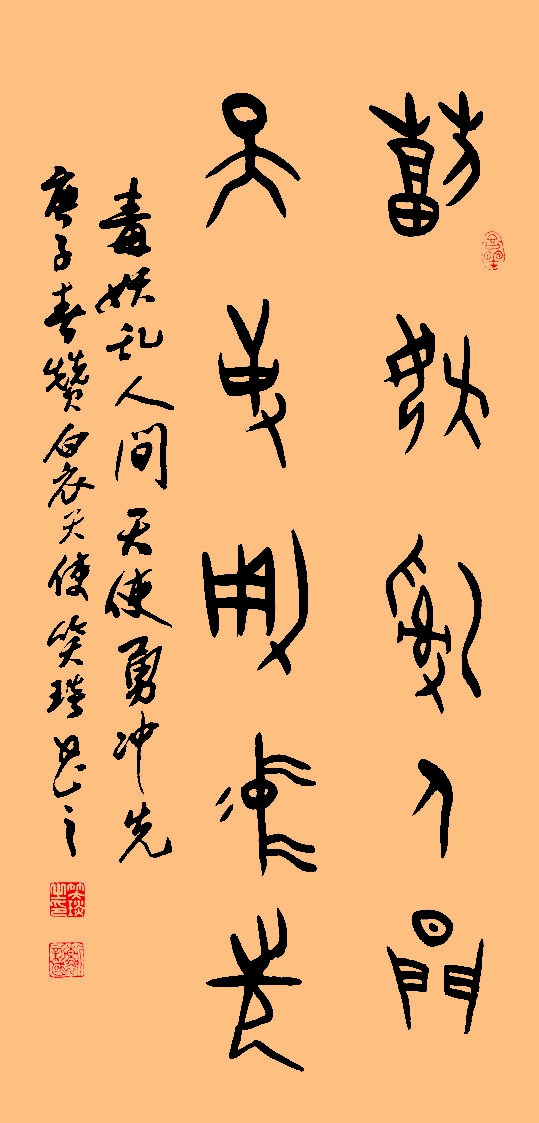 毒妖亂人間
天使勇沖先
毒妖乱人间天使勇冲先
庚子春赞白衣天使笑琰书之